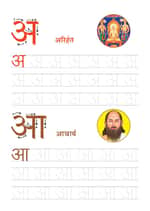 अ अरिहंत
अ अ अ अ अ अ अ
अ अ अ अ अ अ अ
अ अ अ अ अ अ अ
आ आचार्य
आ आ आ आ आ आ
आ आ आ आ आ आ
आ आ आ आ आ आ